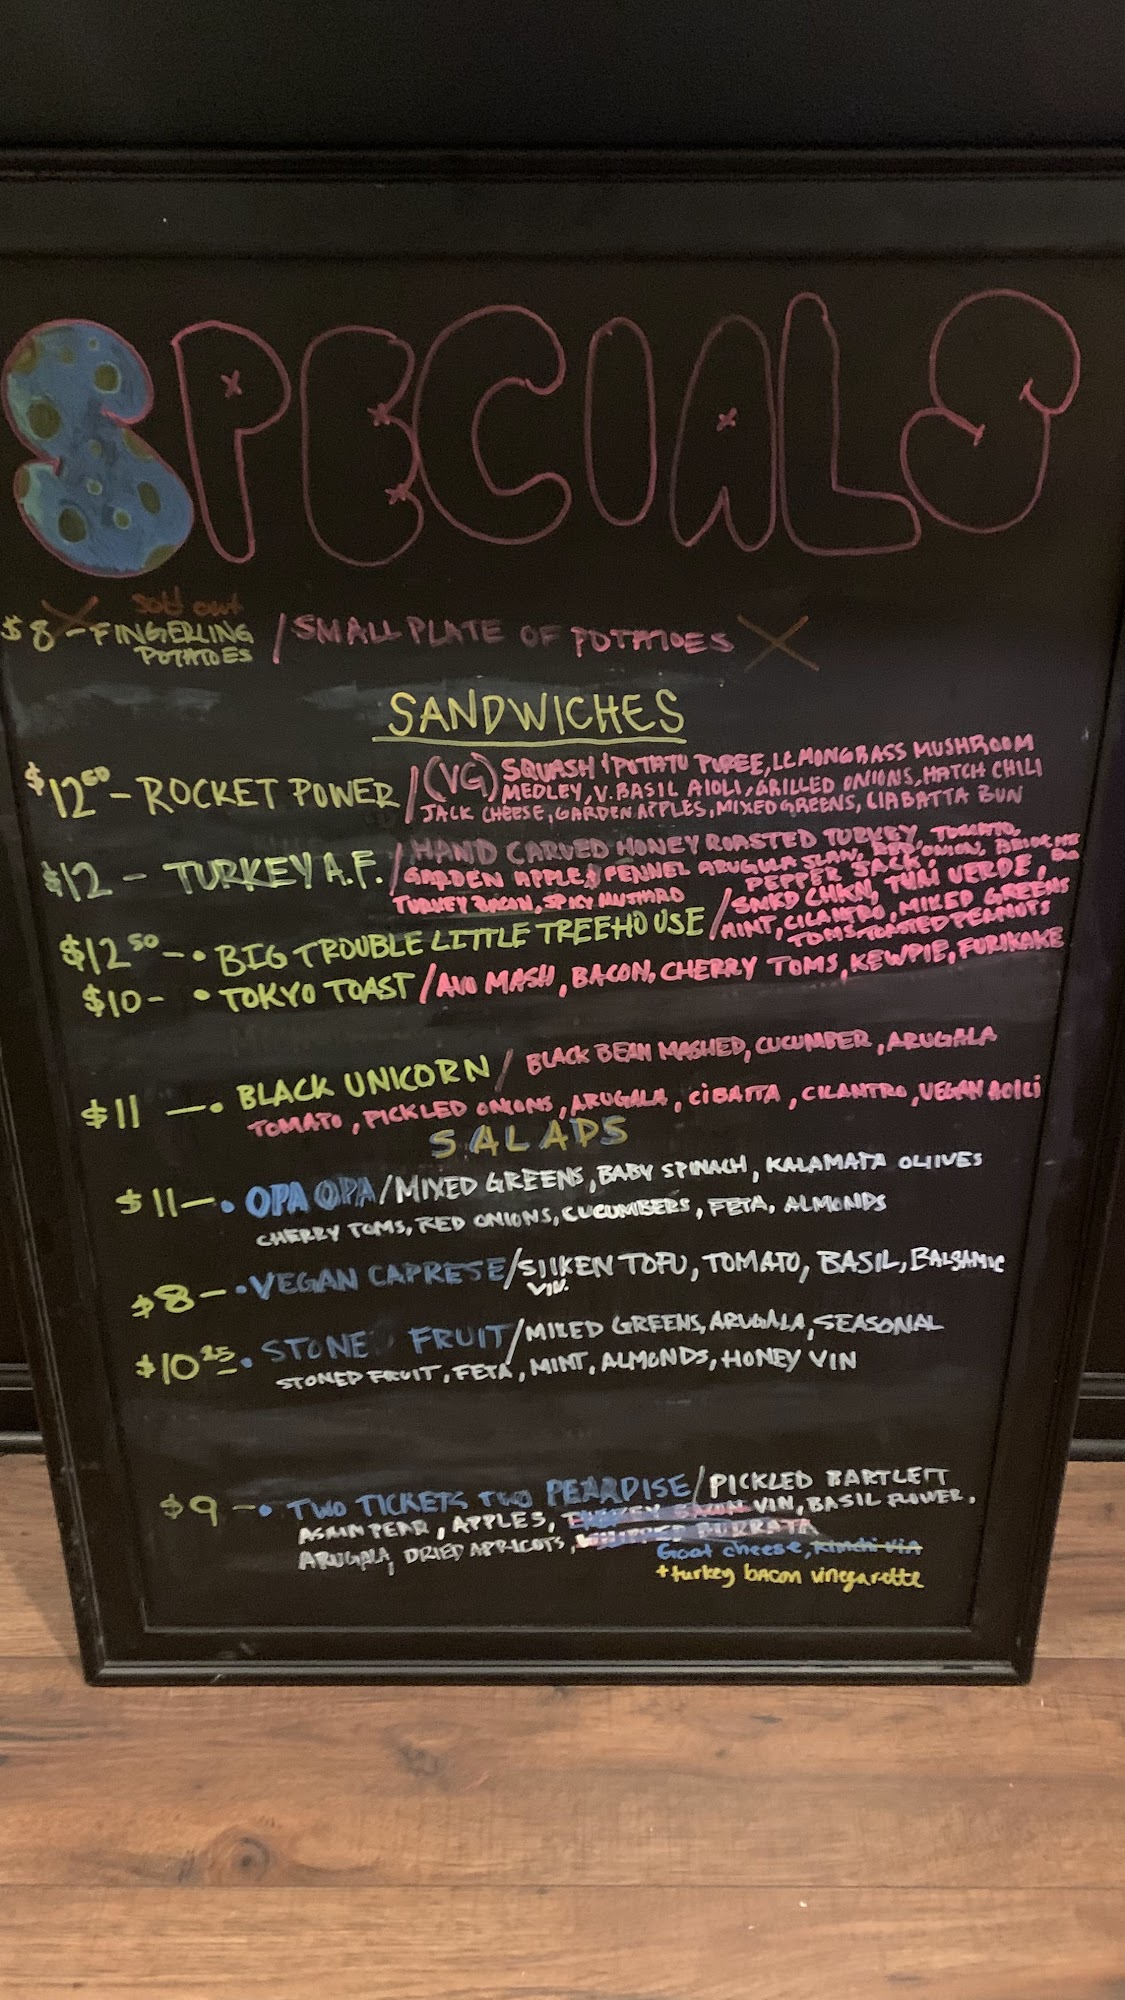 SPECIALS
sold out
$8 - FINGERLING POTATOES / SMALL PLATE OF POTATOES
SANDWICHES
$12.50 - ROCKET POWER / (VG) SQUASH & POTATO PUREE, LEMONGRASS MUSHROOM
MEDLEY, V. BASIL AIOLI, GRILLED ONIONS, HATCH CHILI
JACK CHEESE, GARDEN APPLES, MIXED GREENS, CIABATTA BUN
$12 - TURKEY A.F. / HAND CARVED HONEY ROASTED TURKEY, TOMATO,
GARDEN APPLE & FENNEL ARUGULA SLAW, RED ONION,
PEPPER JACK,
TURKEY BACON, SPICY MUSTARD
$12.50 - • BIG TROUBLE LITTLE TREEHOUSE / SMKD CHKN, TUM VERDE,
MINT, CILANTRO, MIXED GREENS
TOMS, TOASTED PEANUTS
$10 - • TOKYO TOAST / AVO MASH, BACON, CHERRY TOMS, KEWPIE, FURIKAKE
$11 - • BLACK UNICORN / BLACK BEAN MASHED, CUCUMBER, ARUGALA
TOMATO, PICKLED ONIONS, ARUGALA, CIBATTA, CILANTRO, VEGAN AOILI
SALADS
$11 - • OPA OPA / MIXED GREENS, BABY SPINACH, KALAMATA OLIIVES
CHERRY TOMS, RED ONIONS, CUCUMBERS, FETA, ALMONDS
$8 - • VEGAN CAPRESE / SILKEN TOFU, TOMATO, BASIL, BALSAMIC
VIN.
$10.25 • STONE FRUIT / MIXED GREENS, ARUGALA, SEASONAL
STONED FRUIT, FETA, MINT, ALMONDS, HONEY VIN
$9 - • TWO TICKETS TWO PEARDISE / PICKLED BARTLETT
ASIAN PEAR, APPLES, TURKEY BACON VIN, BASIL FLOWER,
ARUGALA, DRIED APRICOTS, WHIPPED BURRATA
Goat cheese, kimchi vin
+ turkey bacon vinegarette